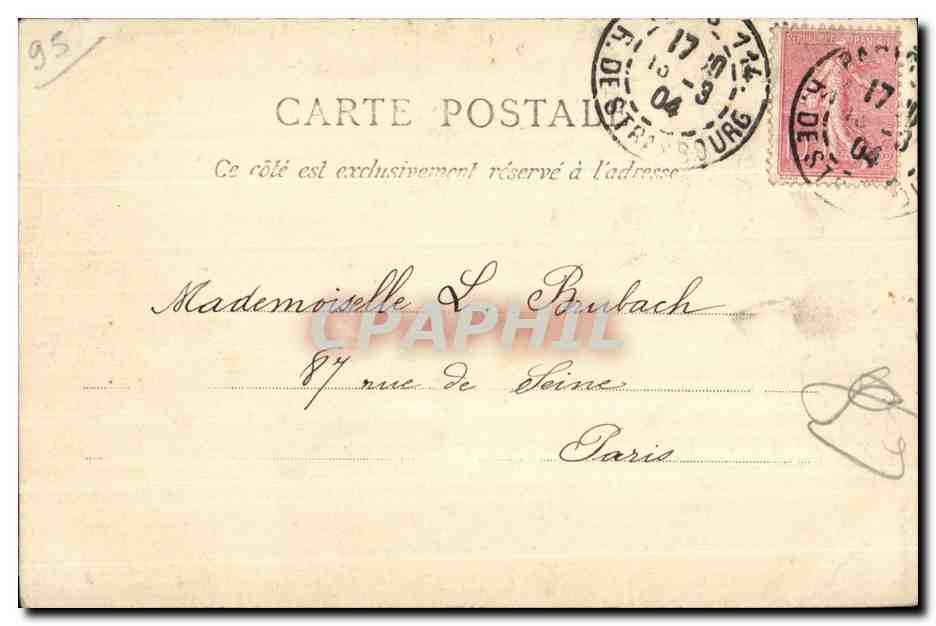 95
CARTE POSTALE
Ce côté est exclusivement réservé à l'adresse
Mademoiselle L. Brubach
87 rue de Seine
Paris
CPAPHIL
114
17
13 - 3
04
R. DE STRASBOURG
17
04
R. DE S